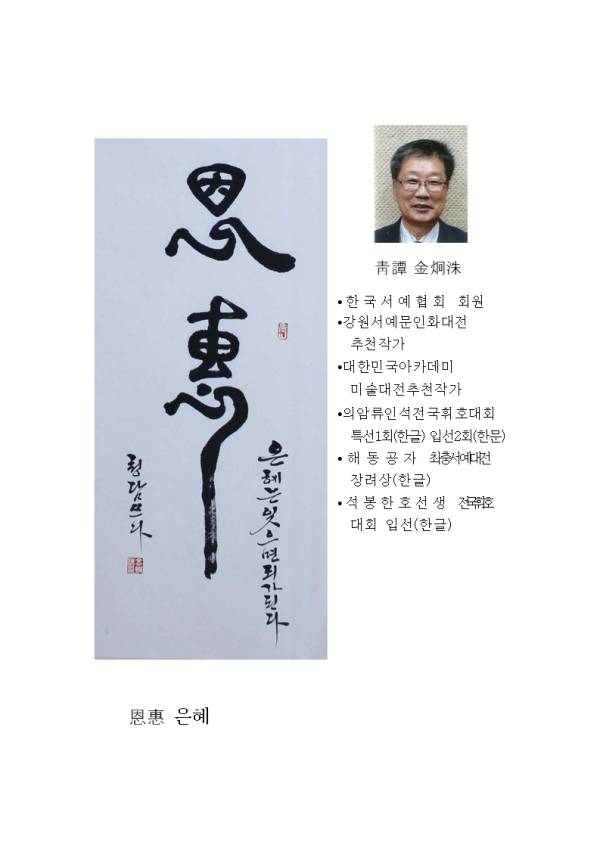 恩惠
은혜는 잊으면 죄가 된다
청담 쓰다
靑譚 金炯洙
• 한국서예협회 회원
• 강원서예문인화대전
추천작가
• 대한민국아카데미
미술대전추천작가
• 의암류인석전국휘호대회
특선1회(한글) 입선2회(한문)
• 해동공자 최충서예대전
장려상(한글)
• 석봉한호선생 전국휘호
대회 입선(한글)
恩惠 은혜